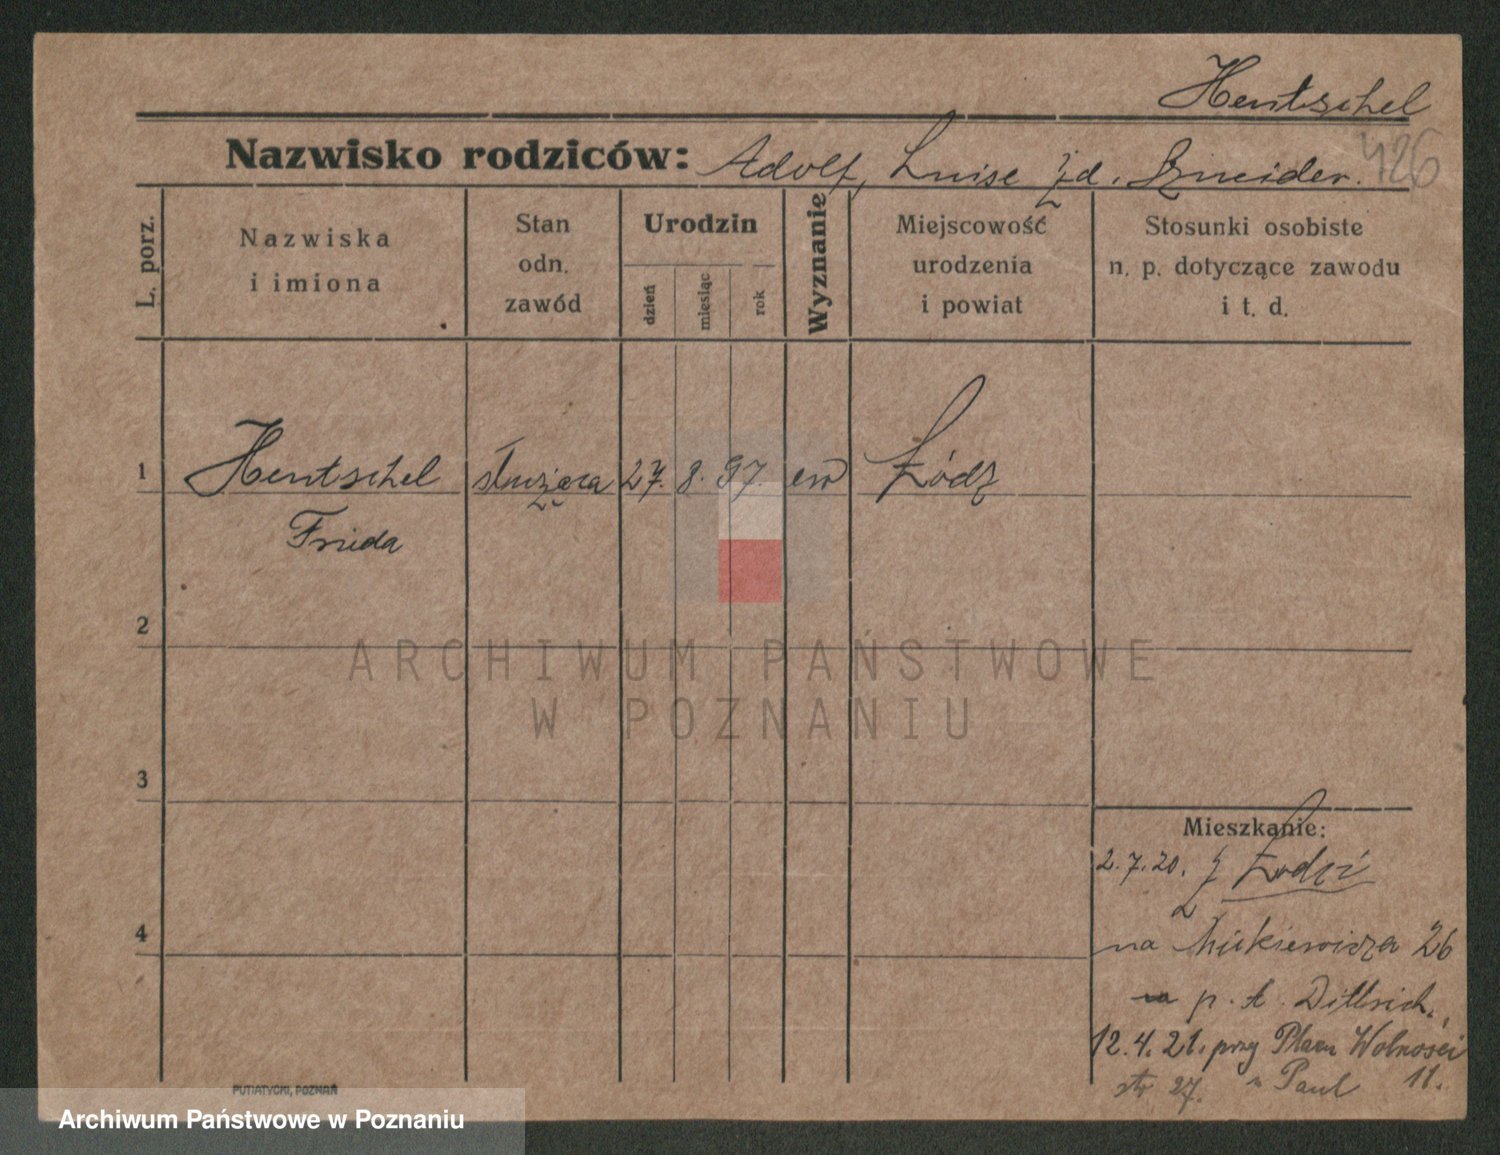 Hentschel
426
Nazwisko rodziców: Adolf, Luise Zd. Szneider.
L. porz.
Nazwiska
i imiona
Stan
odn.
zawód
Urodzin
dzień
miesiąc
rok
Wyznanie
Miejscowość
urodzenia
i powiat
Stosunki osobiste
n. p. dotyczące zawodu
i t. d.
1 Hentschel służąca 27. 8. 97. ew Łódź
Frieda
2
ARCHIWUM PAŃSTWOWE
W POZNANIU
3
Mieszkanie:
2.7.20. z Łodzi
4
na Mickiewicza 26
p. A. Dittrich.
12.4.21. przy Placu Wolności
str 27. u Paul 11.
PUTIATYCKI, POZNAŃ
Archiwum Państwowe w Poznaniu